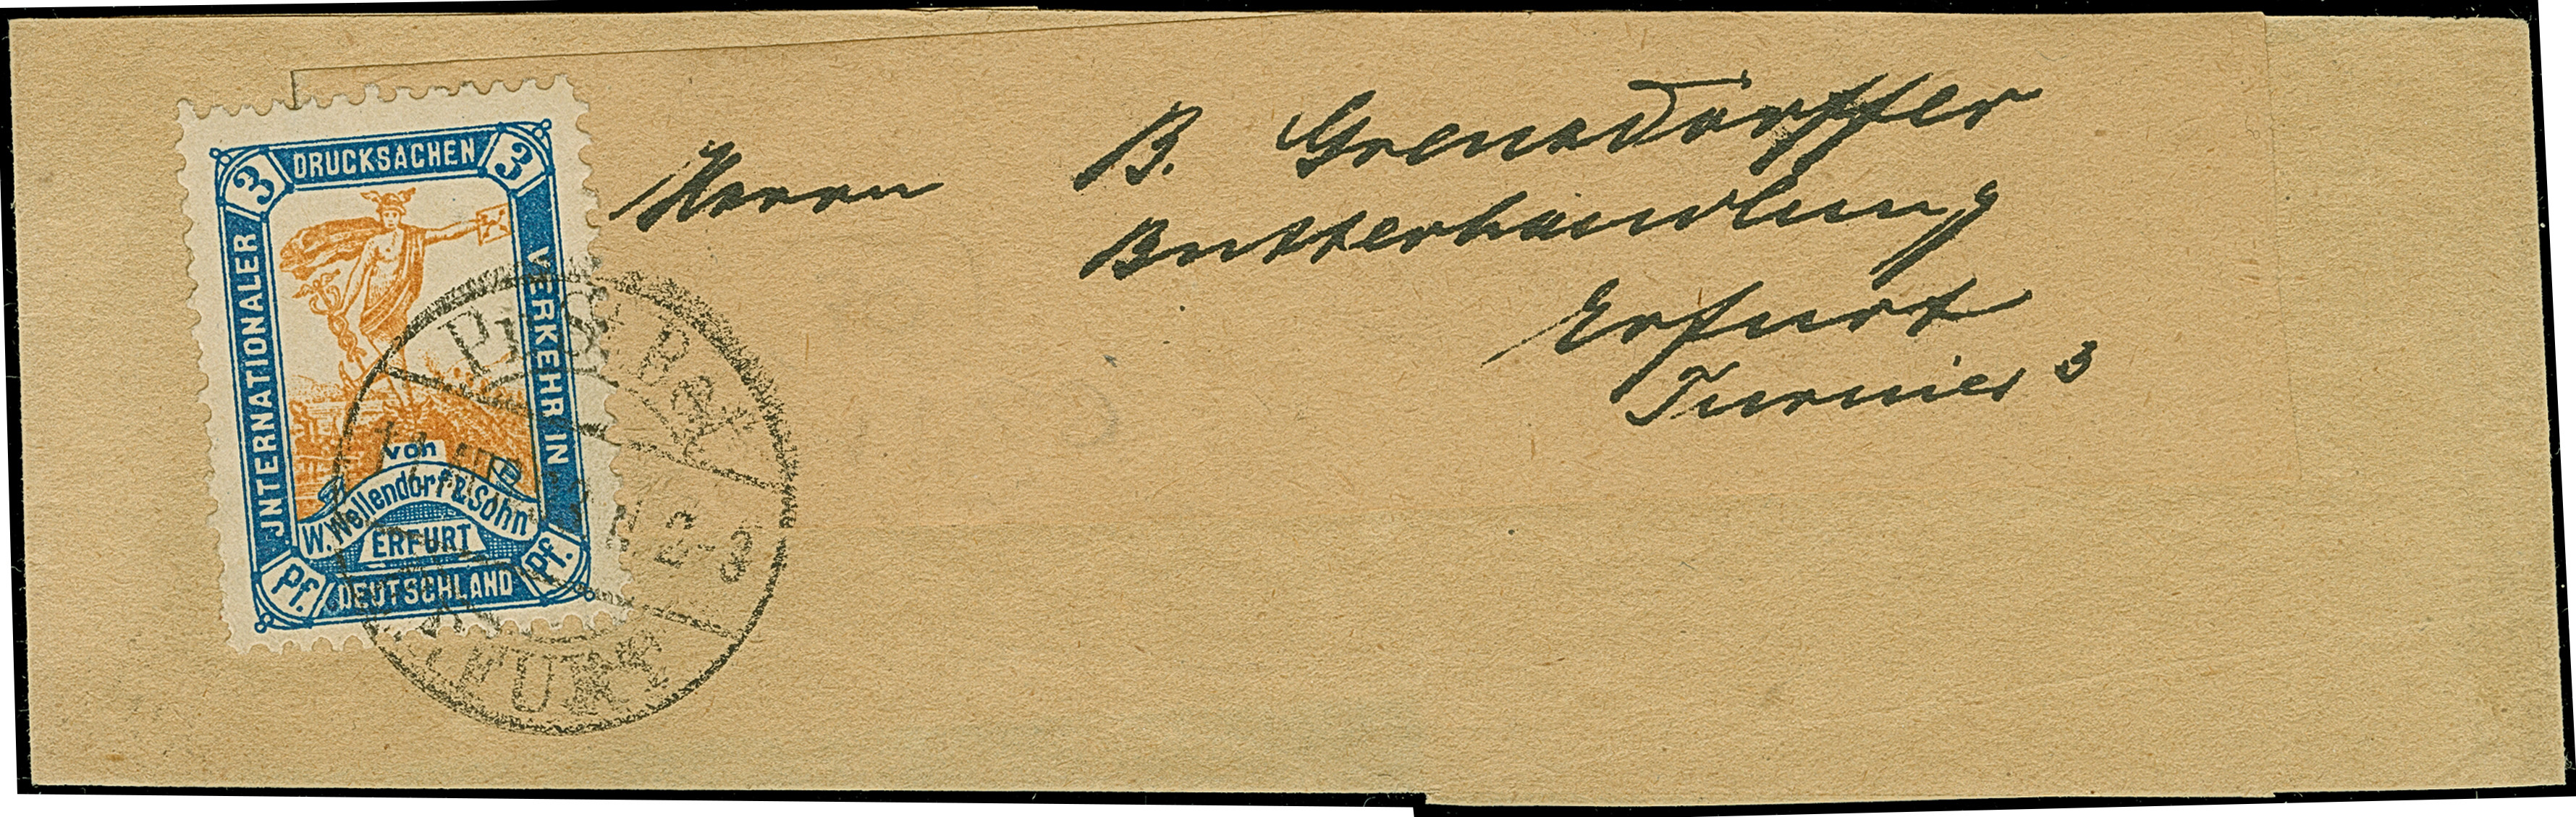 DRUCKSACHEN
3 3
JNTERNATIONALER
VERKEHR IN
von
W. Wellendorf & Sohn
ERFURT
Pf. Pf.
DEUTSCHLAND
Herrn B. Grensdörffer
Butterhandlung
Erfurt
3